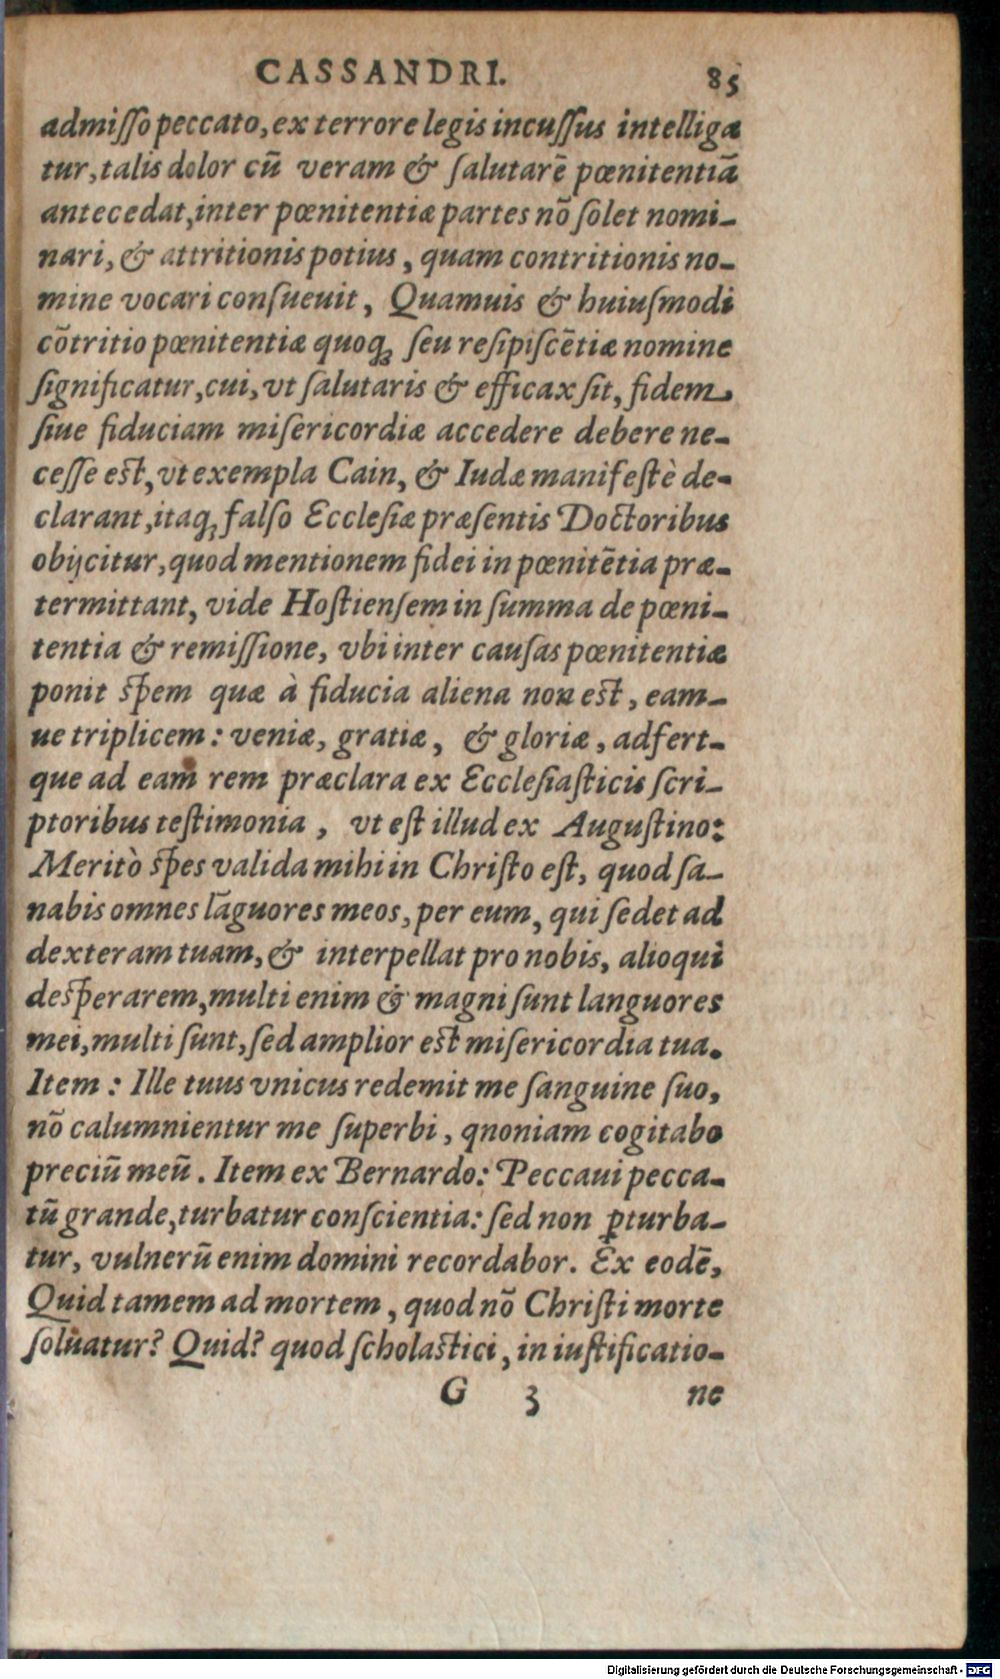 CASSANDRI. 85
admiſſo peccato, ex terrore legis incuſſus intelliga
tur, talis dolor cū veram & ſalutarē pœnitentiā
antecedat, inter pœnitentiæ partes nō ſolet nomi-
nari, & attritionis potius, quam contritionis no-
mine vocari conſueuit, Quamuis & huiuſmodi
cōtritio pœnitentiæ quoq; ſeu reſipiſcētiæ nomine
ſignificatur, cui, vt ſalutaris & efficax ſit, fidem,
ſiue fiduciam miſericordiæ accedere debere ne-
ceſſe eſt, vt exempla Cain, & Iudæ manifeſtè de-
clarant, itaq; falſo Eccleſiæ præſentis Doctoribus
obijcitur, quod mentionem fidei in pœnitētia præ-
termittant, vide Hoſtienſem in ſumma de pœni-
tentia & remiſſione, vbi inter cauſas pœnitentiæ
ponit ſpem quæ à fiducia aliena non eſt, eam-
ue triplicem: veniæ, gratiæ, & gloriæ, adfert-
que ad eam rem præclara ex Eccleſiaſticis ſcri-
ptoribus teſtimonia, vt eſt illud ex Auguſtino:
Meritò ſpes valida mihi in Chriſto eſt, quod ſa-
nabis omnes lāguores meos, per eum, qui ſedet ad
dexteram tuam, & interpellat pro nobis, alioqui
deſperarem, multi enim & magni ſunt languores
mei, multi ſunt, ſed amplior eſt miſericordia tua.
Item: Ille tuus vnicus redemit me ſanguine ſuo,
nō calumnientur me ſuperbi, qnoniam cogitabo
preciū meū. Item ex Bernardo: Peccaui pecca-
tū grande, turbatur conſcientia: ſed non ꝑturba-
tur, vulnerū enim domini recordabor. Ex eodē,
Quid tamem ad mortem, quod nō Chriſti morte
ſoluatur? Quid? quod ſcholaſtici, in iuſtificatio-
G 3 ne
Digitalisierung gefördert durch die Deutsche Forschungsgemeinschaft - DFG